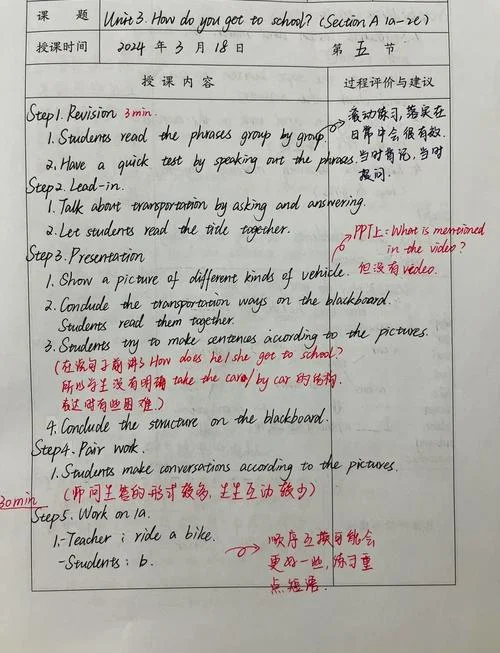 课 题 Unit 3. How do you get to school? (Section A 1a-2e)
授课时间 2024 年 3 月 18 日 第 五 节
授 课 内 容 过程评价与建议
Step1. Revision 3min.
1. Students read the phrases group by group.
2. Have a quick test by speaking out the phrases.
滚动练习,落实在
日常中会很有效.
当时背记,当时
提问.
Step2. Lead-in.
1. Talk about transportation by asking and answering.
2. Let students read the title together.
Step3. Presentation
PPT上: What is mentioned
in the video?
但没有video.
1. Show a picture of different kinds of vehicle.
2. Conclude the transportation ways on the blackboard.
Students read them together.
3. Students try to make sentences according to the pictures.
(在该句子前讲了How does he/she get to school?
所以学生没有明确 take the car/by car 的结构.
表达时有些困难.)
4. Conclude the structure on the blackboard.
Step4. Pair work.
1. Students make conversations according to the pictures.
(师问生答的形式较多,生生互动较少)
30min
Step5. Work on 1a.
1.-Teacher: ride a bike.
-Students: b.
顺序互换可能会
更好一些,练习重
点短语.